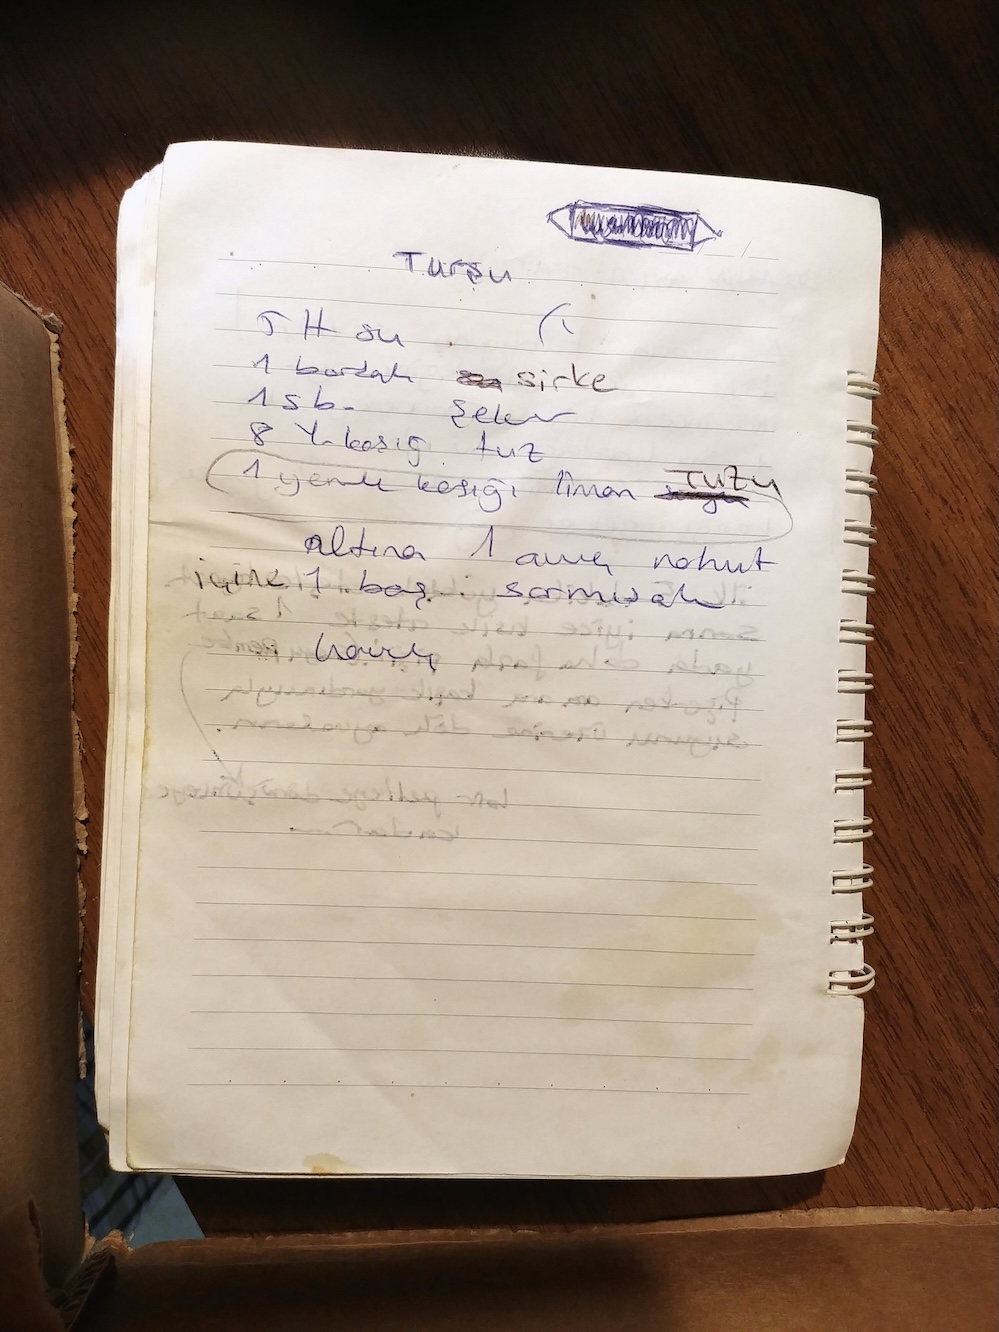 Turşu
5 lt su
1 bardak sirke
1 s b. şeker
8 Y. kaşığ. tuz
1 yemek kaşığı limon TUZU
altına 1 avuç nohut
içine 1 baş. sarmısak
havuç